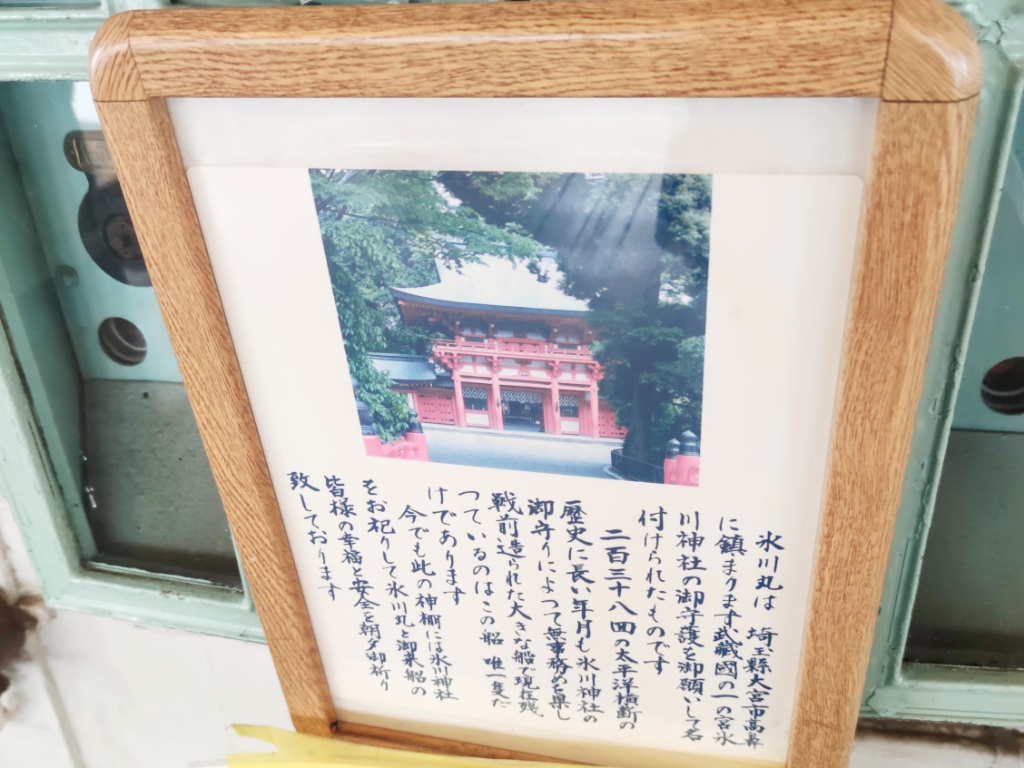 氷川丸は 埼玉縣大宮市高鼻
に鎮まります武蔵國の一の宮氷
川神社の御守護を御願いして名
付けられたものです
二百三十八回の太平洋横断の
歴史に長い年月も氷川神社の
御守りによって無事務めを果し
戦前造られた大きな船で現在残
っているのはこの船 唯一隻だ
けであります
今でも此の神棚には氷川神社
をお祀りして氷川丸と御来船の
皆様の幸福と安全を朝夕御祈り
致しております